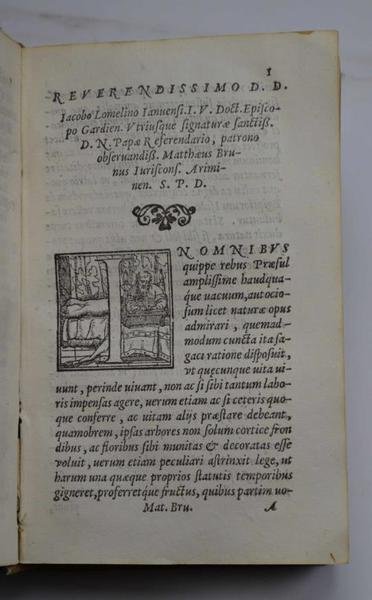 1
REVERENDISSIMO D. D.
Iacobo Lomelino Ianuensi. I. V. Doct. Episco-
po Gardien. Vtriusque signaturæ sanctiß.
D. N. Papæ Referendario, patrono
obseruandiß. Matthæus Bru-
nus Iurisconf. Arimi-
nen. S. P. D.
N OMNIBVS
quippe rebus Præsul
amplissime haudqua-
quæ uacuum, autocio-
sum licet naturæ opus
admirari, quemad-
modum cuncta ita sa-
gaci ratione disposuit,
vt quęcunque uita ui-
uunt, perinde uiuant, non ac si sibi tantum labo-
ris impensas agere, uerum etiam ac si ceteris quo-
que conferre, ac uitam alijs præstare debeant,
quamobrem, ipsas arbores non solum cortice fron
dibus, ac floribus sibi munitas & decoratas esse
voluit, uerum etiam peculiari astrinxit lege, ut
harum una quæque proprios statutis temporibus
gigneret, proferretq́ue fructus, quibus partim uo-
Mat. Bru. A